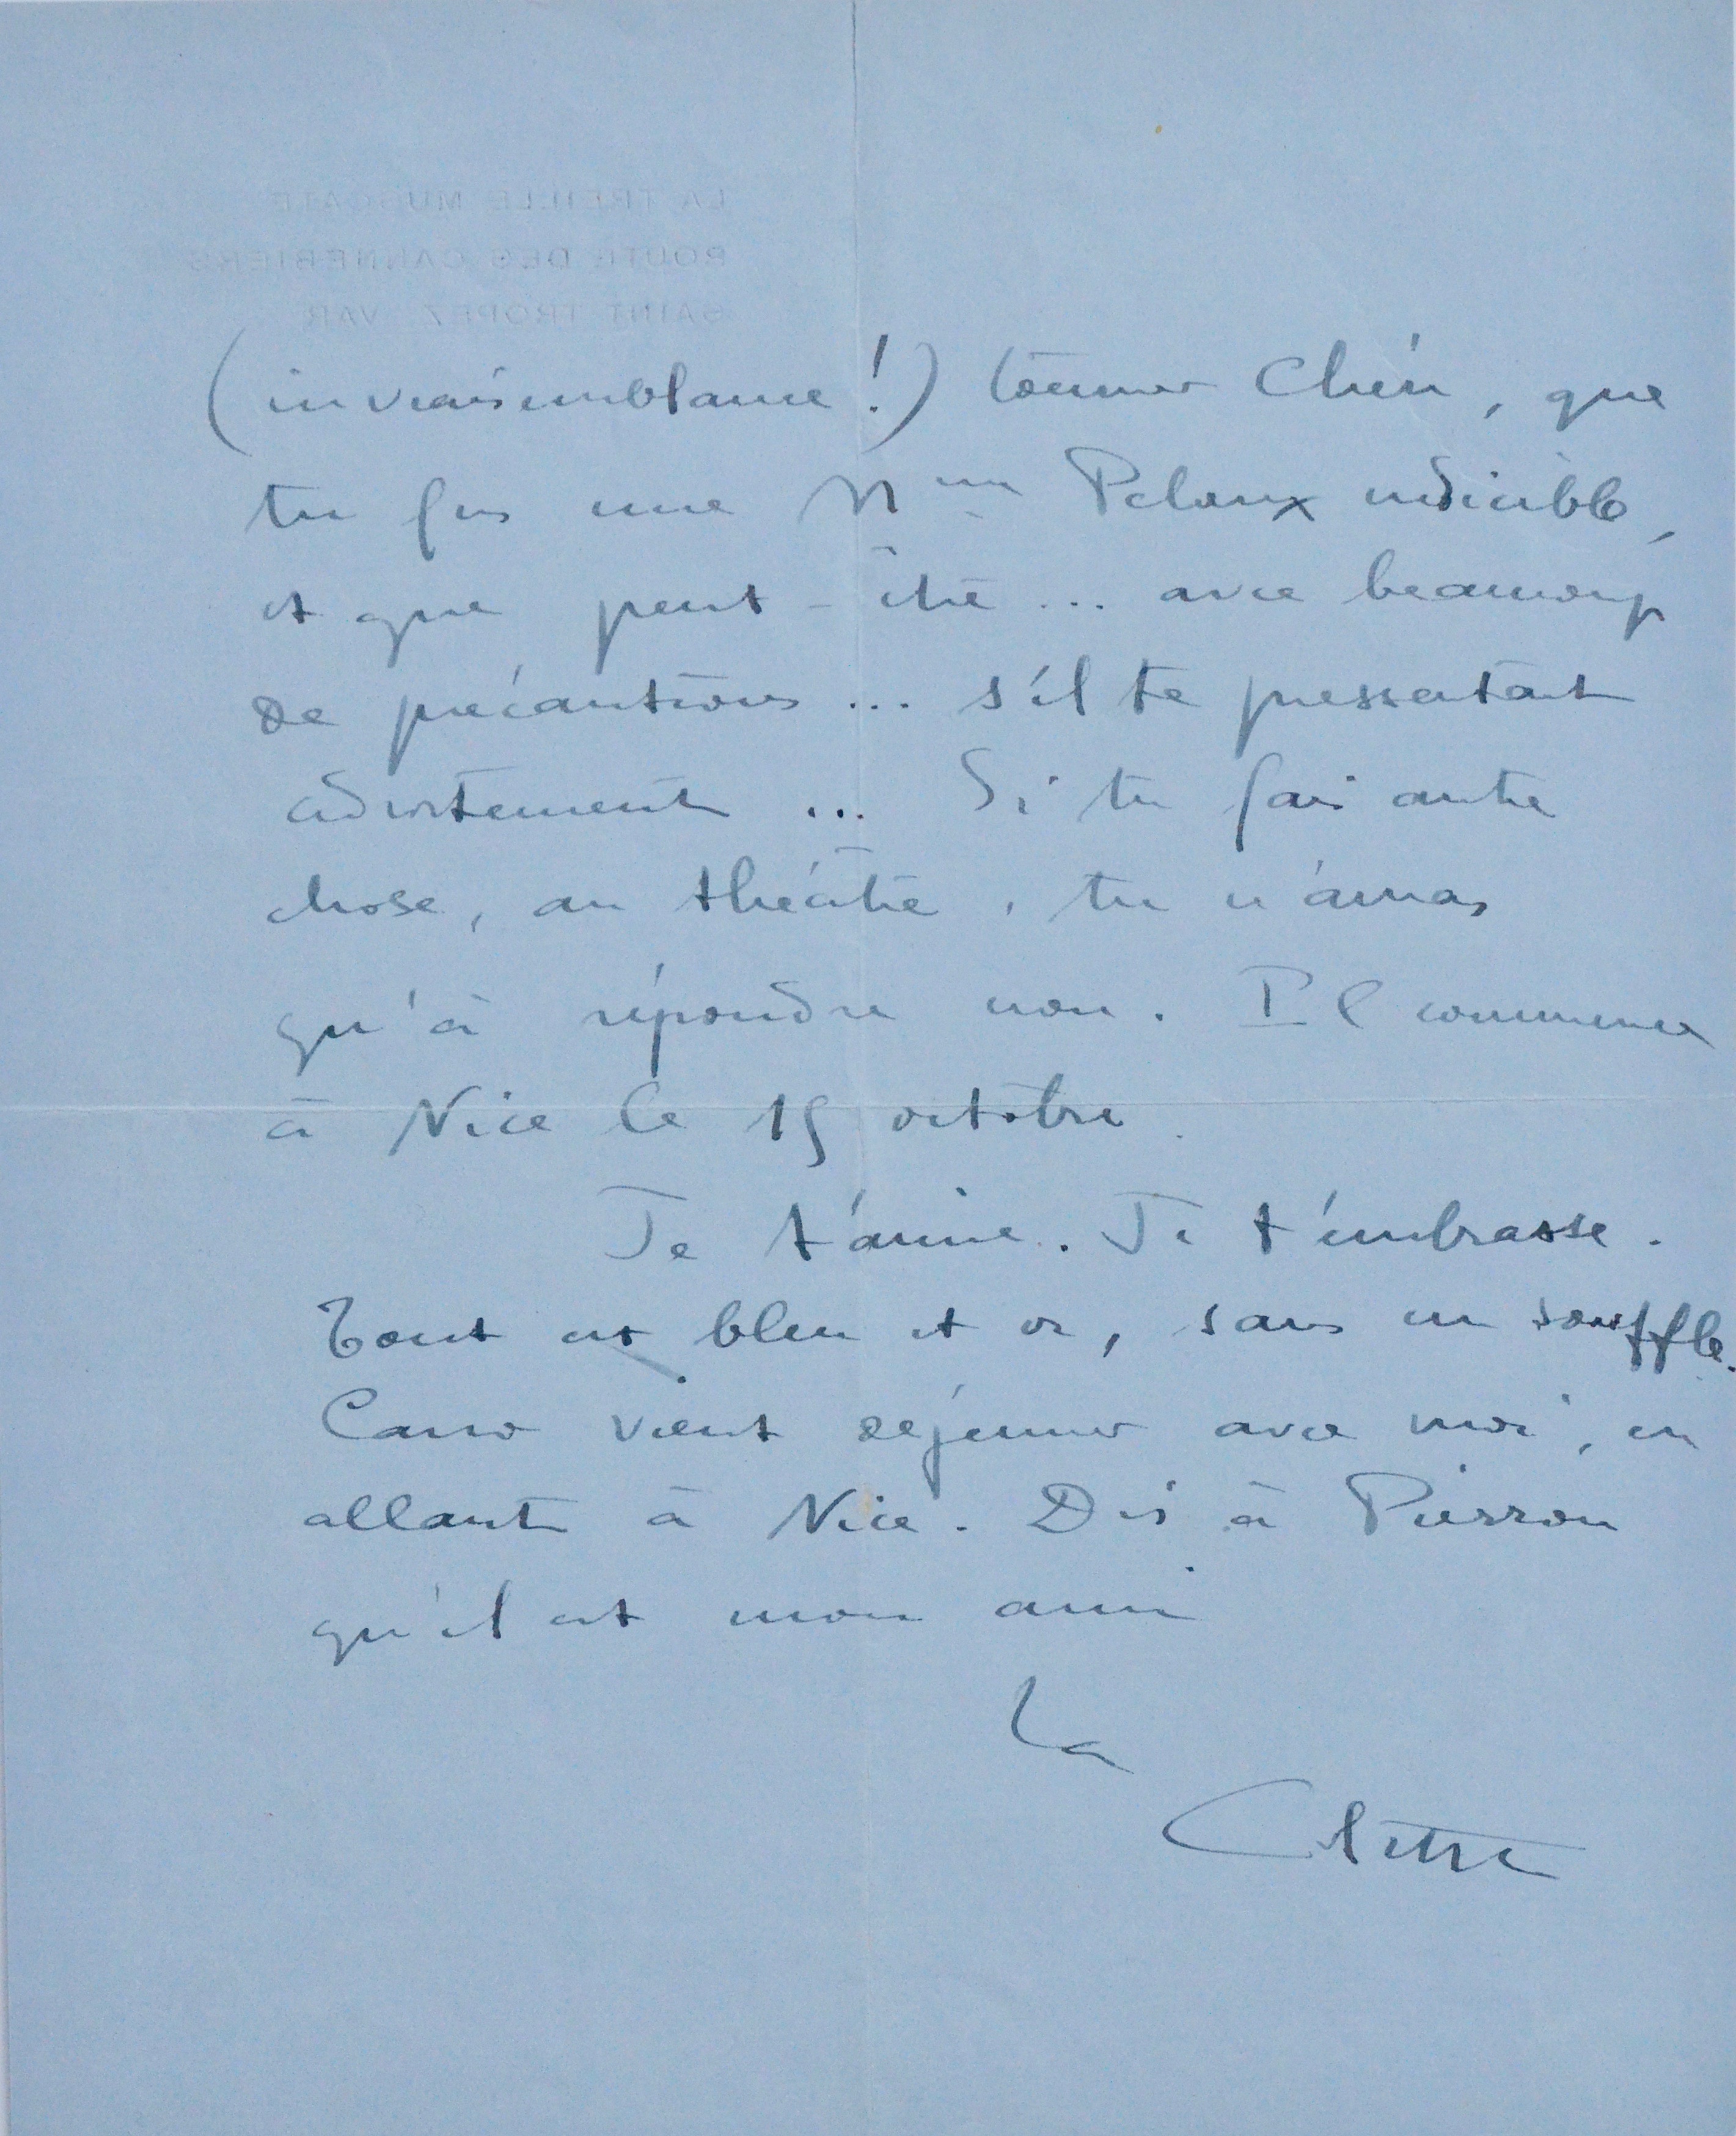 LA TREILLE MUSCATE
ROUTE DES CANNEBIERS
SAINT TROPEZ VAR
(invraisemblance !) tourner Chéri, que
tu fus une Mme Peloux indicible,
et que peut-être ... avec beaucoup
de précautions ... s'il te pressentait
adroitement ... Si tu fais autre
chose, au théâtre, tu n'auras
qu'à répondre non. Il commence
à Nice le 15 octobre.
Je t'aime. Je t'embrasse.
Tout est bleu et or, sans un souffle.
Carco vient déjeuner avec moi, en
allant à Nice. Dis à Pierron
qu'il est mon ami
ta
Colette